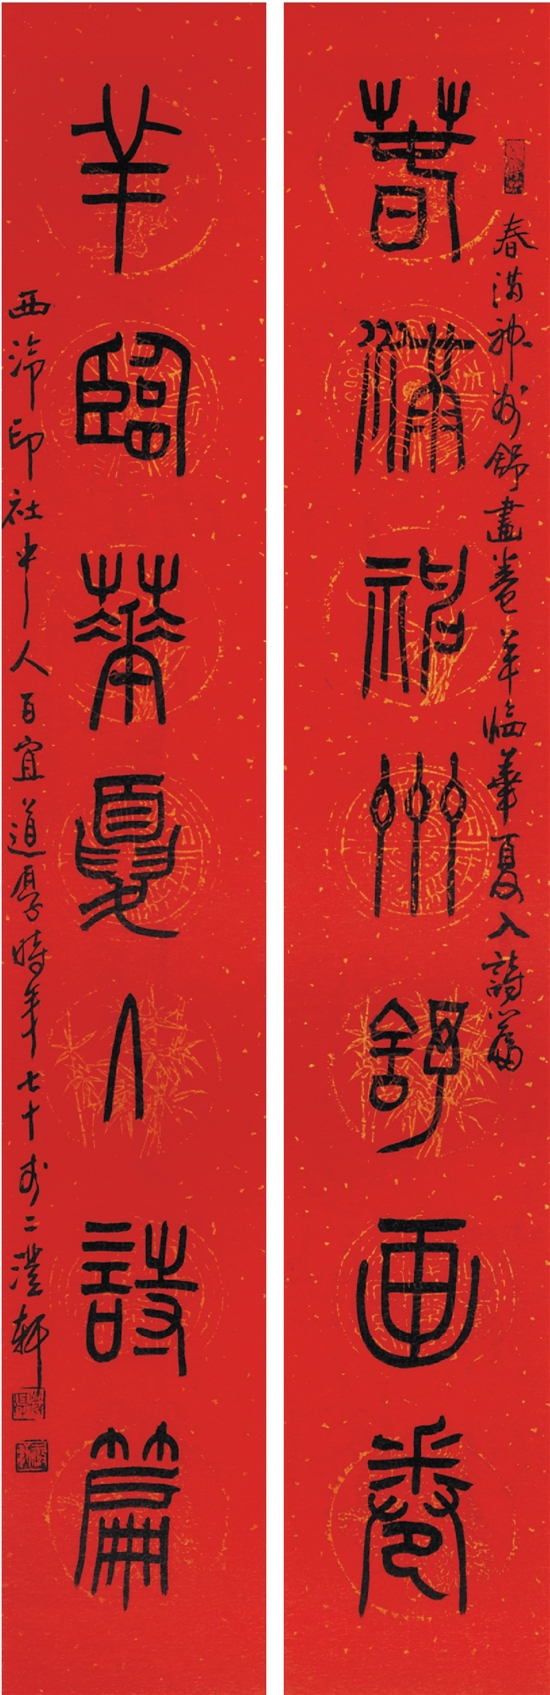 春滿神州舒画卷
春满神州舒畫卷羊临華夏入詩篇
羊臨華夏入詩篇
西泠印社中人百宜道厚時年七十於二澄軒